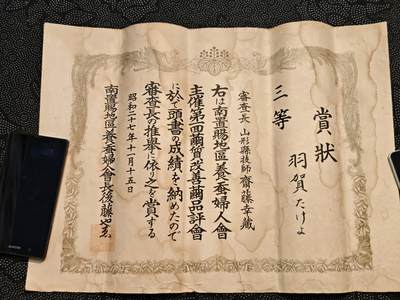 賞狀
三等
羽賀たけよ
審査長 山形縣技師 齋藤幸藏
右は南置賜地區養蚕婦人會
主催第一回繭質改善繭品評會
に於て頭書の成績を納めたので
審査長の推擧に依り之を賞する
昭和二十七年十一月十五日
南置賜地區養蚕婦人會長後藤